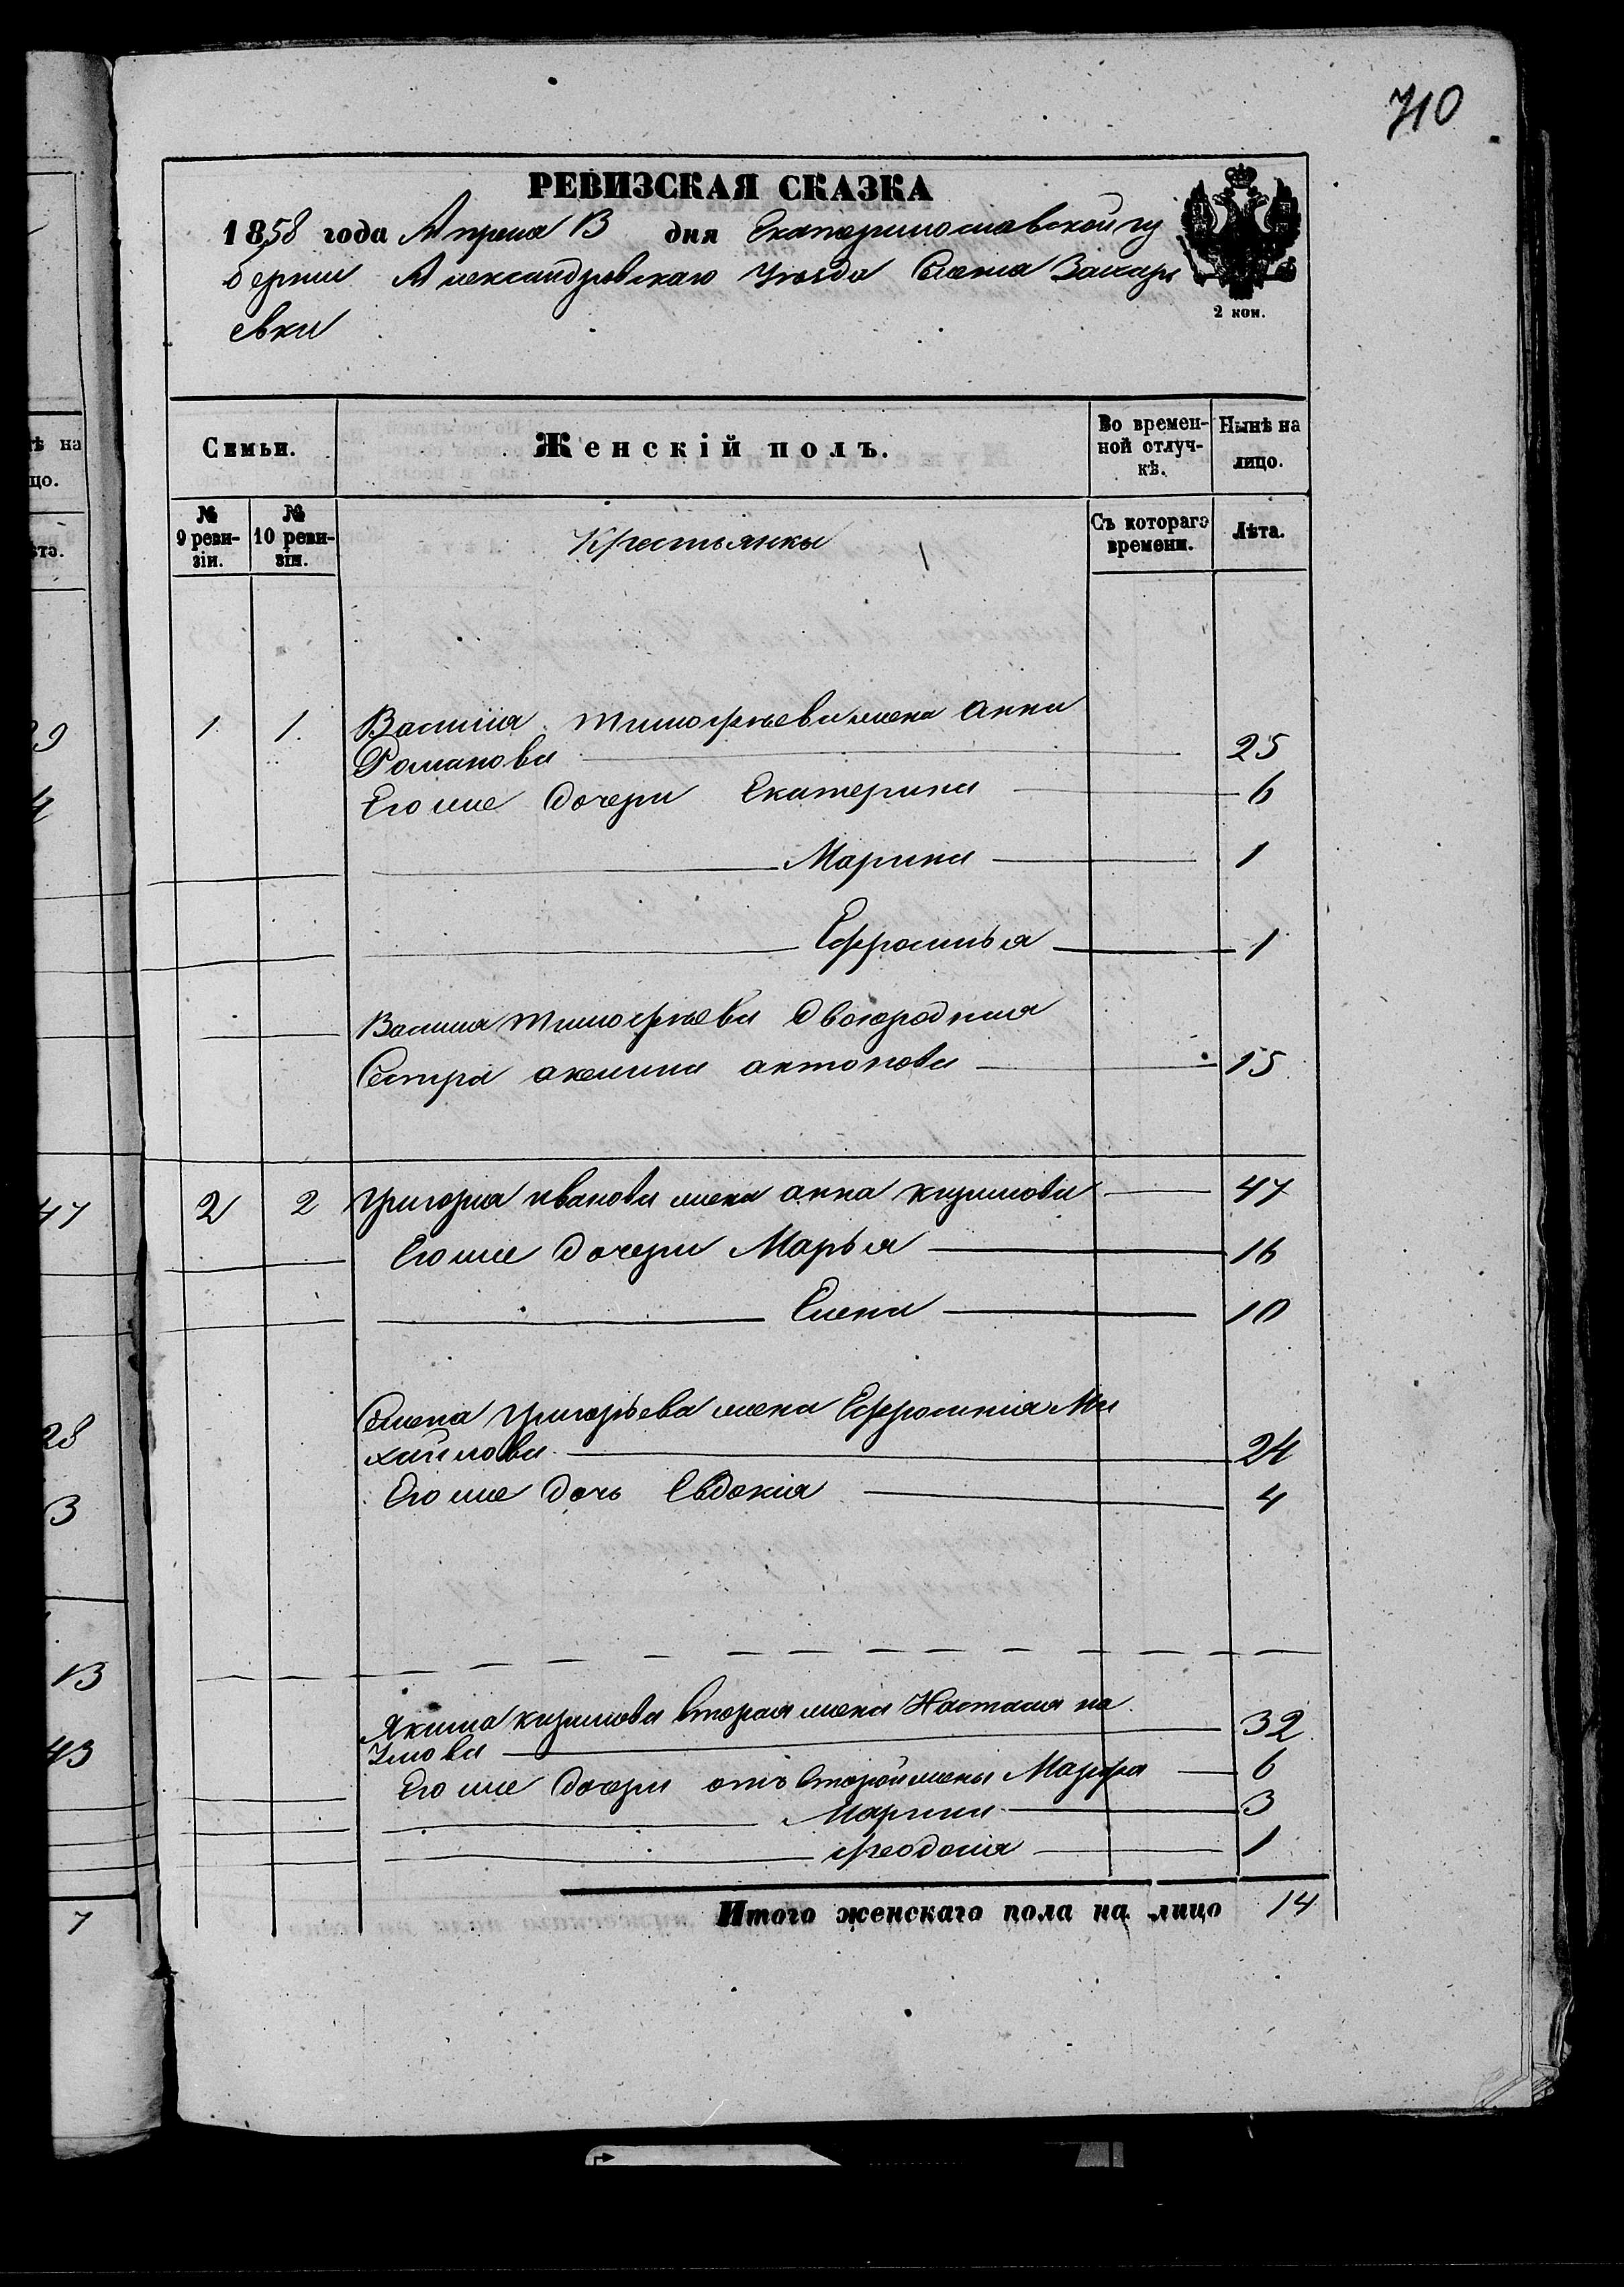 710
РЕВИЗСКАЯ СКАЗКА
1858 года Апреля 13 дня Екатеринославской гу
берніи Александровскаго Уезда Села Захарь
евки
2 коп.
Семьи.
Женскій полъ.
Во времен-
ной отлуч-
кѣ.
Нынѣ на
лицо.
№
9 реви-
зіи.
№
10 реви-
зіи.
Крестьянки
Съ котораго
времени.
Лѣта.
1 1. Василия Тимофѣева жена Анна
Романова 25
Его же дочери Екатерина 6
Марина 1
Ефросинья 1
Василия Тимофѣева двоюродная
Сестра акилина антонова 15
2 2 Григория иванова жена анна кизимова 47
Его же дочери Марья 16
Елена 10
Семена Григорьева жена Ефросинія Ми
хайлова 24
Его же дочь Евдокія 4
Якима кизимова вторая жена Настасия на
умова 32
Его же дочери отъ второй жены Марфа 6
Марина 3
феодосия 1
Итого женскаго пола на лицо 14
ѣ на
цо.
ѣта.
29
4
47
28
3
13
43
7